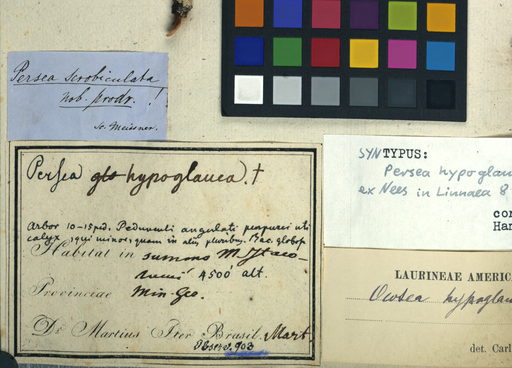 Persea scrobiculata
nob. prodr. !
sc. Meissner.
Persea glo hypoglauca. †
Arbor 10-15ped. Pedunculi angulati purpurei uti
calyx, qui minor, quam in aliis pluribus. Bac. globos
Habitat in summo M. Itaco-
lumi 4500' alt.
Provinciae Min. Geo.
Dr Martius Iter Brasil. Mart.
Observ. 903
SYNTYPUS:
Persea hypoglau
ex Nees in Linnaea 8
con
Han
LAURINEAE AMERICA
Ocotea hypoglau
det. Carl